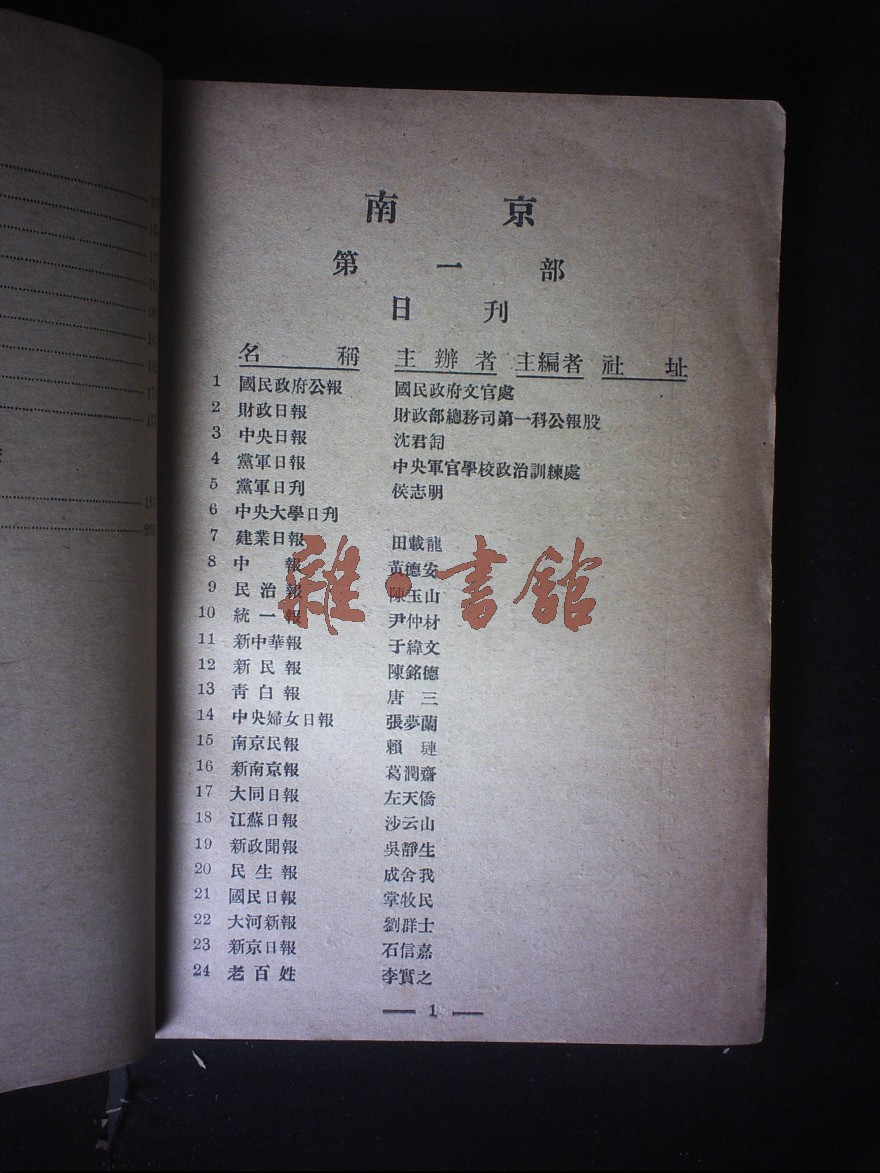 南京
第一部
日刊
名稱 主辦者 主編者 社址
1 國民政府公報 國民政府文官處
2 財政日報 財政部總務司第一科公報股
3 中央日報 沈君匋
4 黨軍日報 中央軍官學校政治訓練處
5 黨軍日刋 侯志明
6 中央大學日刋
7 建業日報 田載龍
8 中報 黃德安
9 民治報 陳玉山
10 統一報 尹仲材
11 新中華報 于緯文
12 新民報 陳銘德
13 靑白報 唐三
14 中央婦女日報 張夢蘭
15 南京民報 賴璉
16 新南京報 葛潤齋
17 大同日報 左天僑
18 江蘇日報 沙云山
19 新政聞報 吳靜生
20 民生報 成舍我
21 國民日報 掌牧民
22 大河新報 劉群士
23 新京日報 石信嘉
24 老百姓 李實之
— 1 —
雜·書館
181